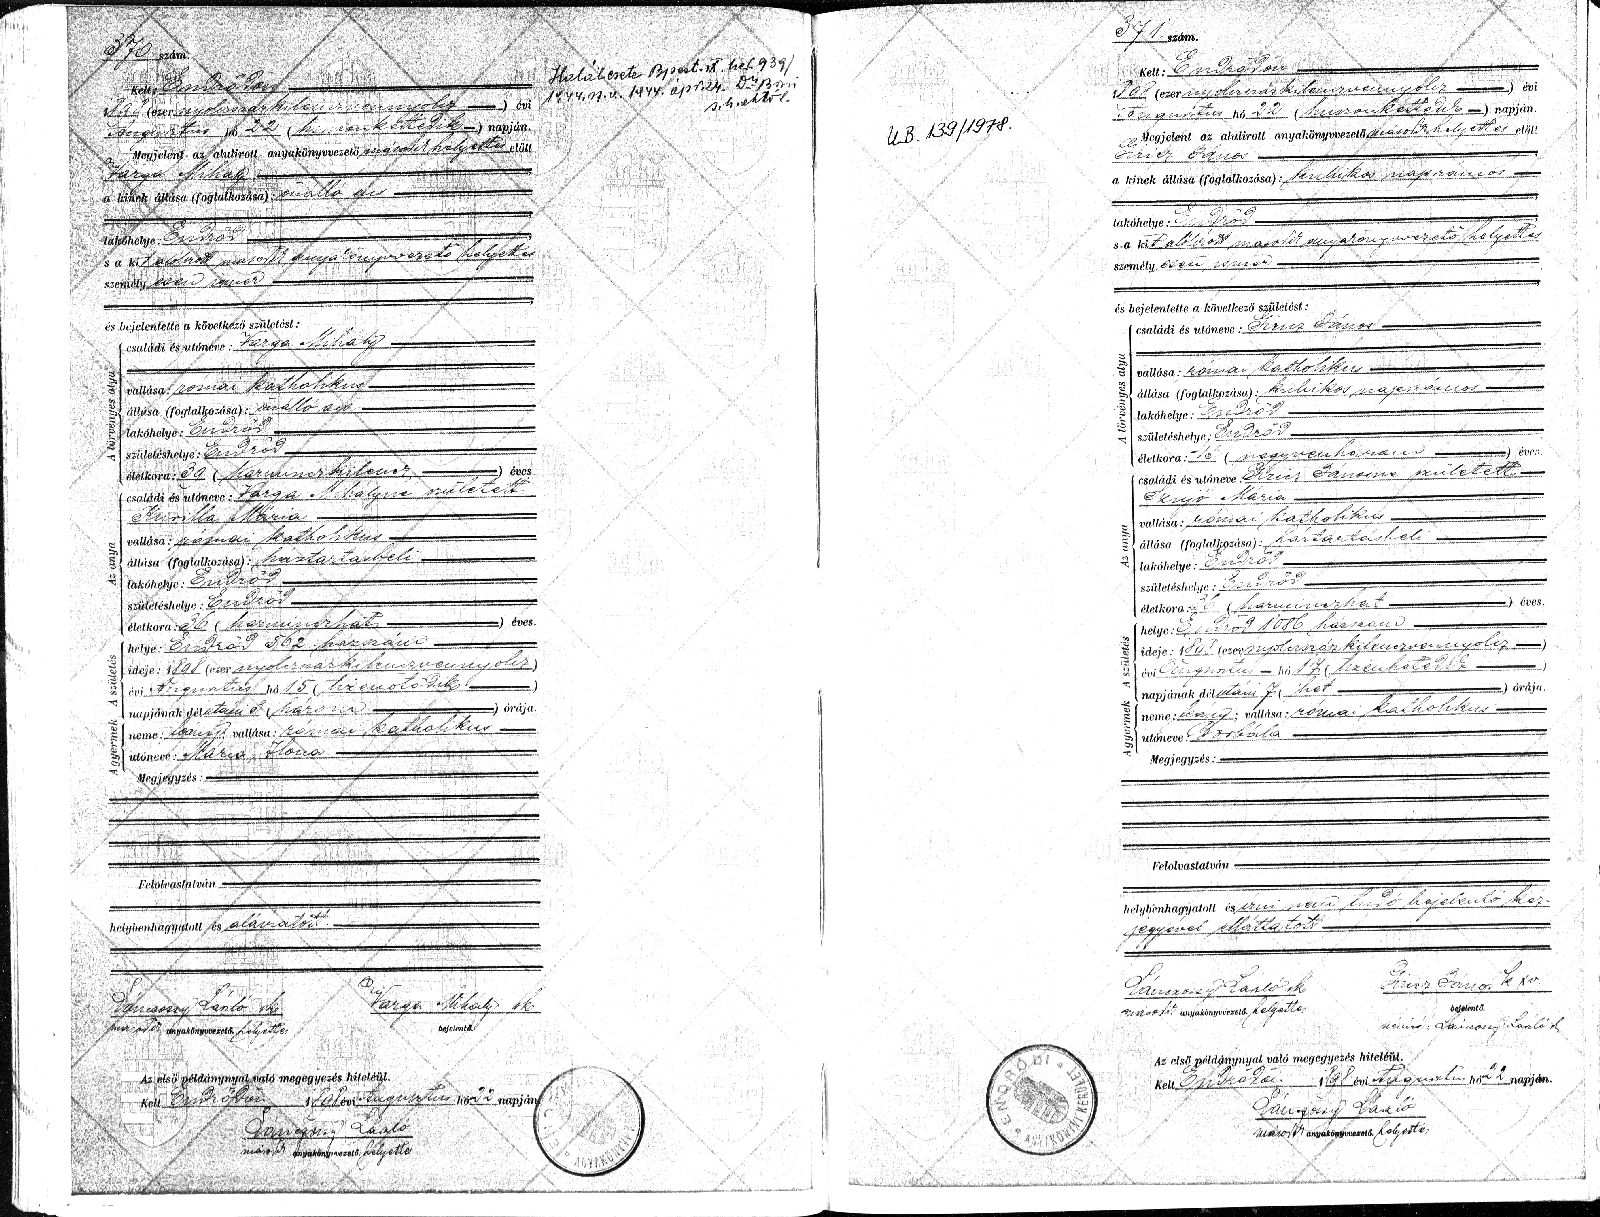 370. szám.
Kelt: Endrődön
1898 (ezer nyolczszázkilenczvennyolcz) évi
Augusztus hó 22 (huszonkettedik) napján.
Megjelent az alulirott anyakönyvvezető másodhelyettes előtt
Varga Mihály
a kinek állása (foglalkozása): önálló
lakóhelye: Endrőd
s a kit alulirott másod anyakönyvvezető helyettes
személy esen ismer
és bejelentette a következő születést:
A törvényes atya
családi és utóneve: Varga Mihály
vallása: római katholikus
állása (foglalkozása): önálló
lakóhelye: Endrőd
születéshelye: Endrőd
életkora: 39 (harminczkilencz) éves
Az anya
családi és utóneve: Varga Mihályné született
Kurilla Mária
vallása: római katholikus
állása (foglalkozása): háztartásbeli
lakóhelye: Endrőd
születéshelye: Endrőd
életkora: 36 (harminczhat) éves.
A születés
helye: Endrőd 562 házszám
ideje: 1898 (ezer nyolczszázkilenczvennyolcz)
évi Augusztus hó 15 (tizenötödik)
napjának délután 3 (három) órája.
A gyermek
neme: leány; vallása: római katholikus
utóneve: Mária Ilona
Megjegyzés:
Felolvastatván
helybenhagyatott és aláiratott.
Lánczossy László sk
másod anyakönyvvezető. helyettes
Varga Mihály sk
bejelentő.
Az első példánynyal való megegyezés hiteléül.
Kelt Endrődön 1898 évi Augusztus hó 22 napján
Lánczossy László
másod anyakönyvvezető. helyettes
Halálesete Bpest. 939/
1944. 1944. ápr. 24. Dr
U.B. 139/1978.
371. szám.
Kelt: Endrődön
1898 (ezer nyolczszázkilenczvennyolcz) évi
Augusztus hó 22 (huszonkettedik) napján.
Megjelent az alulirott anyakönyvvezető másod helyettes előtt
János
a kinek állása (foglalkozása): kubikos napszámos
lakóhelye: Endrőd
s a kit alulirott másod anyakönyvvezető helyettes
személy esen ismer
és bejelentette a következő születést:
A törvényes atya
családi és utóneve: János
vallása: római katholikus
állása (foglalkozása): kubikos napszámos
lakóhelye: Endrőd
születéshelye: Endrőd
életkora: 43 (negyvenhárom) éves.
Az anya
családi és utóneve: Jánosné született
Mária
vallása: római katholikus
állása (foglalkozása): háztartásbeli
lakóhelye: Endrőd
születéshelye: Endrőd
életkora: 36 (harminczhat) éves.
A születés
helye: Endrőd 1086 házszám
ideje: 1898 (ezer nyolczszázkilenczvennyolcz)
évi Augusztus hó 17 (tizenhetedik)
napjának délután 7 (hét) órája.
A gyermek
neme: leány; vallása: római katholikus
utóneve: Borbála
Megjegyzés:
Felolvastatván
helybenhagyatott és irni nem tudó bejelentő kéz-
jegyével elláttatott
Lánczossy László sk
másod anyakönyvvezető. helyettes
János k x v.
bejelentő.
névíró: Lánczossy László sk
Az első példánynyal való megegyezés hiteléül.
Kelt Endrődön 1898 évi Augusztus hó 22 napján.
Lánczossy László
másod anyakönyvvezető. helyettes
ENDRŐDI ANYAKÖNYVI KERÜLET